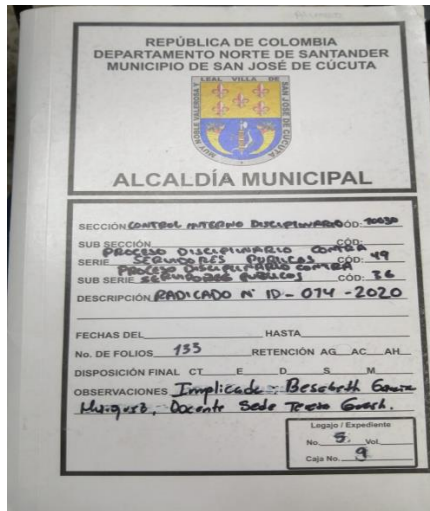 REPÚBLICA DE COLOMBIA
DEPARTAMENTO NORTE DE SANTANDER
MUNICIPIO DE SAN JOSÉ DE CÚCUTA
MUY NOBLE VALEROSA Y LEAL VILLA DE SAN JOSE DE CUCUTA
ALCALDÍA MUNICIPAL
SECCIÓN CONTROL INTERNO DISCIPLINARIO CÓD: 10030
SUB SECCIÓN CÓD:
PROCESO DISCIPLINARIO CONTRA
SERIE SERVIDORES PUBLICOS CÓD: 49
PROCESO DISCIPLINARIO CONTRA
SUB SERIE SERVIDORES PUBLICOS CÓD: 36
DESCRIPCIÓN RADICADO N° ID - 074 - 2020
FECHAS DEL HASTA
No. DE FOLIOS 135 RETENCIÓN AG AC AH
DISPOSICIÓN FINAL CT E D S M
OBSERVACIONES Implicada :
Docente Sede
Legajo / Expediente
No. 5. Vol.
Caja No. 9